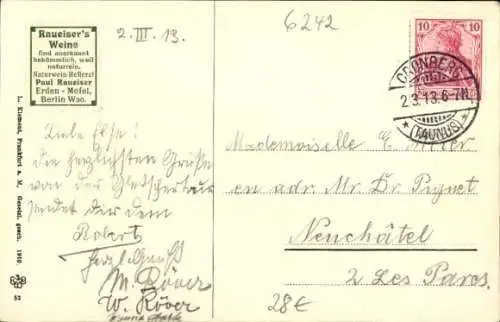 Raueiser's
Weine
sind anerkannt
bekömmlich, weil
naturrein.
Naturwein-Kellerei
Paul Raueiser
Erden - Mosel,
Berlin W30.
2. III. 13.
6242
10 10
CRONBERG
2.3.13.6-7N.
* (TAUNUS) *
Liebe Else!
die herzlichsten Grüße
von der Gletschertour
sendet dir dein
Robert
Herzl. Gruß
M. Röver
W. Röver
Mademoiselle E.
en adr Mr. Dr.
Neuchâtel
2 Les Parcs.
28€
L. Klement, Frankfurt a. M., Gesetzl. gesch. 1910
52